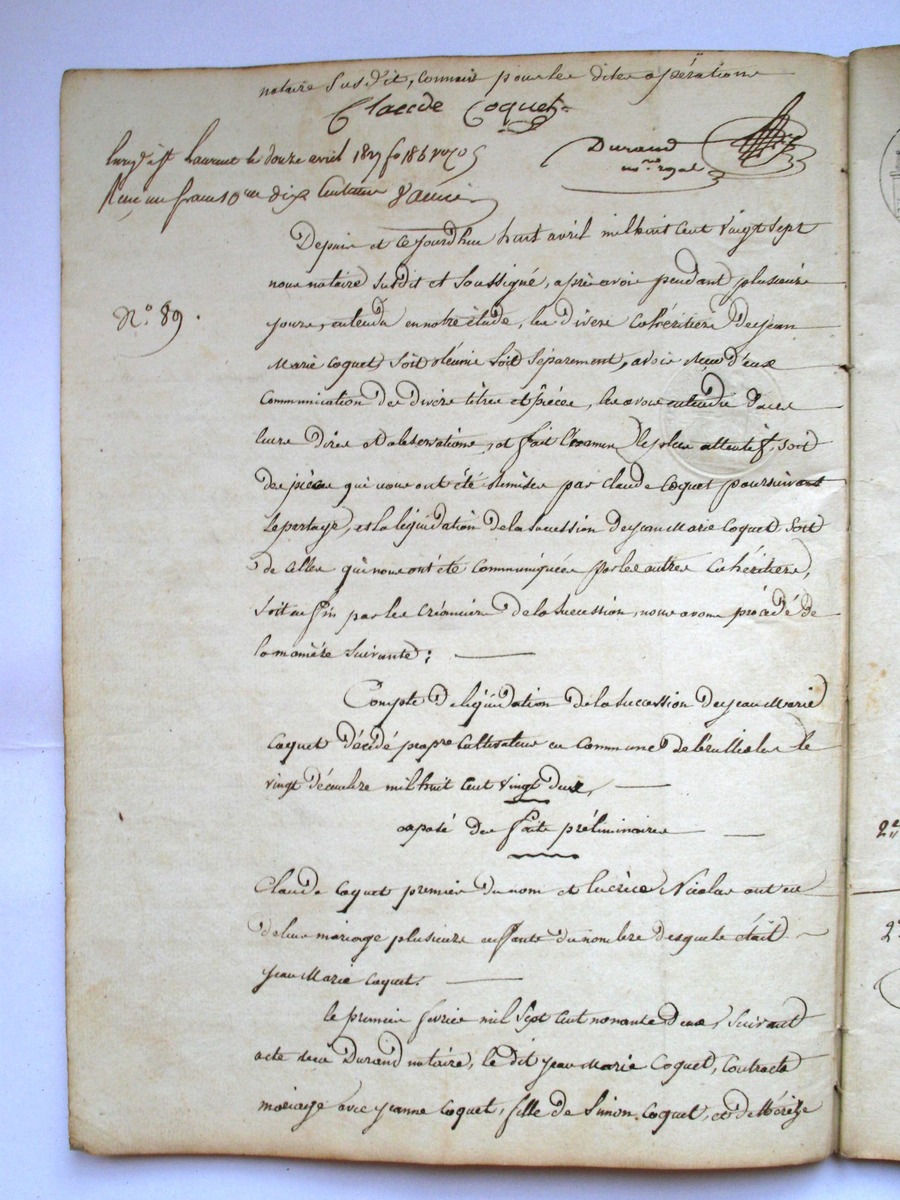 notaire susdit, commis pour les dites opérations
Claude Coquet
Durand
nre royal
St Laurent le douze avril 1827 fo 186 vo
Reçu un franc 10me dix centimes
Depuis et cejourd'hui huit avril mil huit cent vingt sept
nous notaire susdit et soussigné, après avoir pendant plusieurs
jours, entendu en notre étude, les divers cohéritiers de Jean
Marie Coquet, soit réunis soit séparement, avoir reçu d'eux
Communication de divers titres et pièces, les avoir entendu dans
leurs dires et observations, et fait l'examen le plus attentif, soit
des pièces qui nous ont été remises par Claude Coquet poursuivant
le partage, et la liquidation de la succession de Jean Marie Coquet soit
de celles qui nous ont été communiquées par les autres cohéritiers,
soit enfin par les créanciers de la succession, nous avons procédé de
la manière suivante :
No. 89.
Compte de liquidation de la succession de Jean Marie
Coquet décédé propre cultivateur en commune de Brullioles le
vingt décembre mil huit cent vingt deux,
exposé des faits préliminaires
Claude Coquet premier du nom et Lucrèce Nicolas ont eu
de leur mariage plusieurs enfants du nombre desquels était
Jean Marie Coquet.
le premier fevrier mil sept cent nonante deux, suivant
acte reçu Durand notaire, le dit Jean Marie Coquet, contracta
mariage avec Jeanne Coquet, fille de Simon Coquet, et de
2e